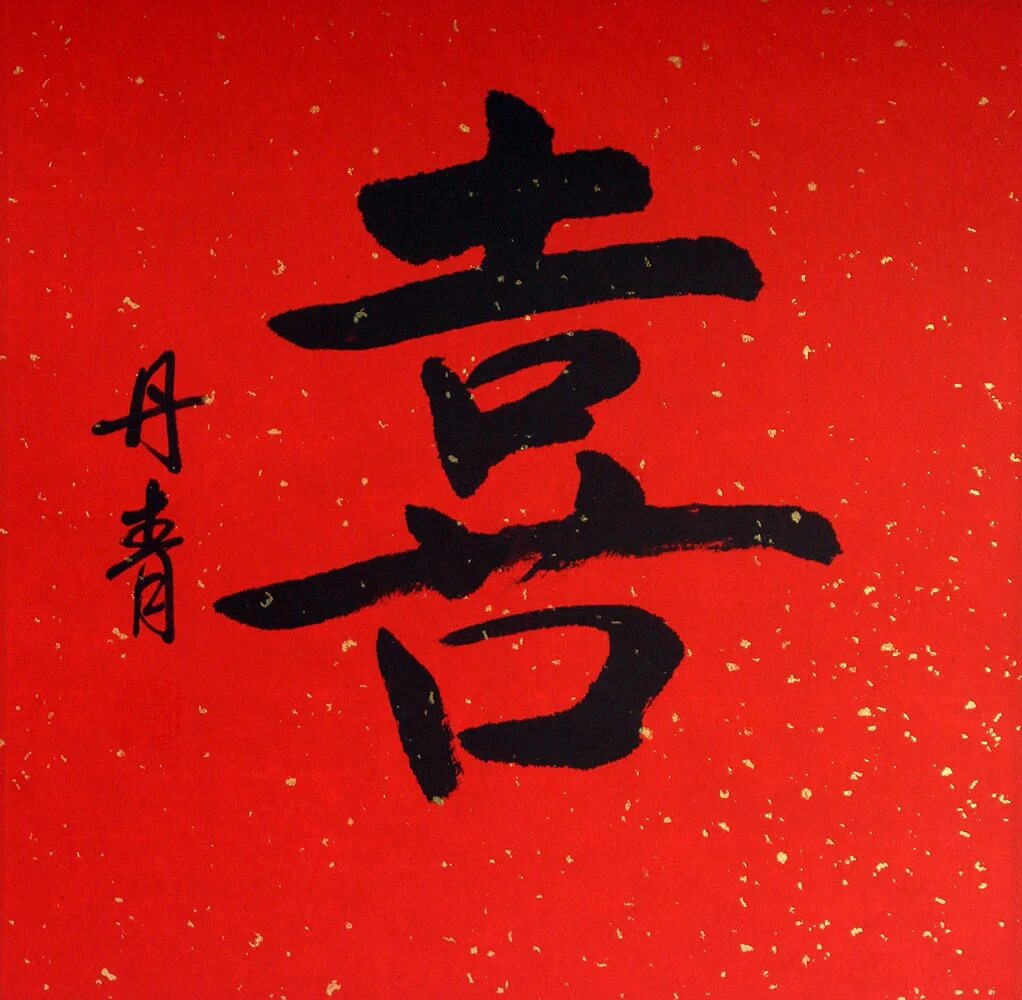 喜
丹青